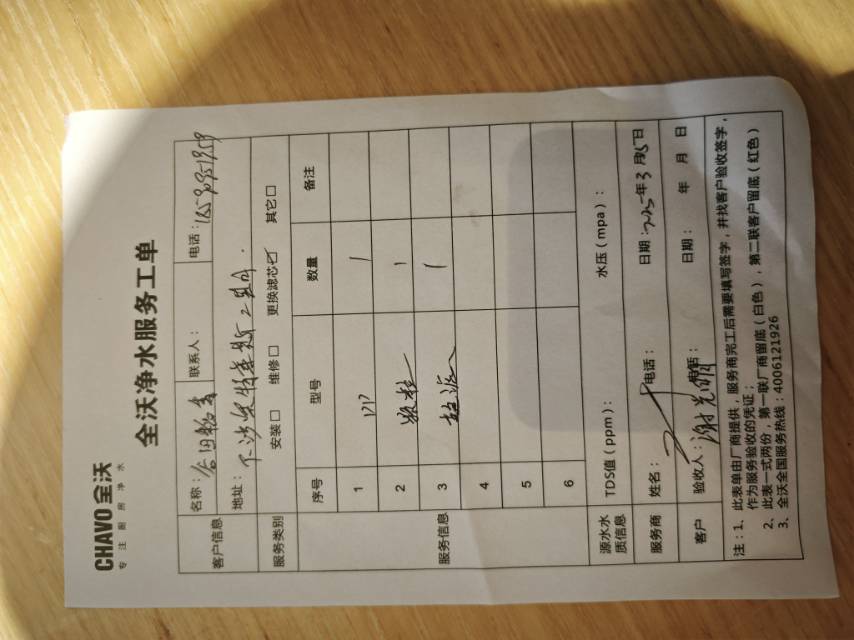 CHAVO全沃
专注厨房净水
全沃净水服务工单
客户信息 名称： 联系人： 电话：
地址：下沙
服务类别 安装□ 维修□ 更换滤芯☑ 其它□
服务信息 序号 型号 数量 备注
1 PP 1
2 颗粒 1
3 超滤 1
4
5
6
源水水质信息 TDS值（ppm）： 水压（mpa）：
服务商 姓名： 电话： 日期：2025年3月15日
客户 验收人：谢光明 电话： 日期： 年 月 日
注：1、此表单由厂商提供，服务商完工后需要填写签字，并找客户验收签字，
作为服务验收的凭证；
2、此表一式两份，第一联厂商留底（白色），第二联客户留底（红色）
3、全沃全国服务热线：4006121926